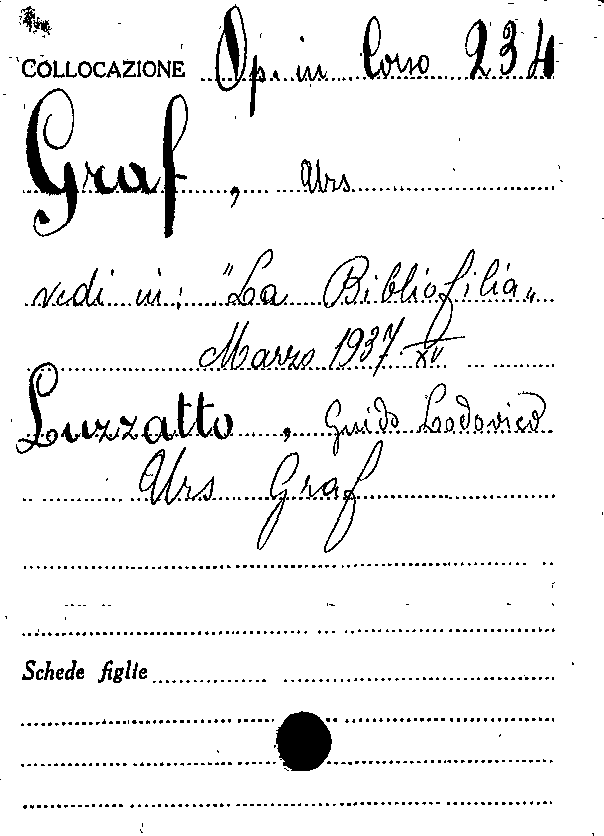 COLLOCAZIONE Op. in Corso 234
Graf, Urs
vedi in: "La Bibliofilia„
Marzo 1937 XV
Luzzatto, Guido Lodovico
Urs Graf
Schede figlie